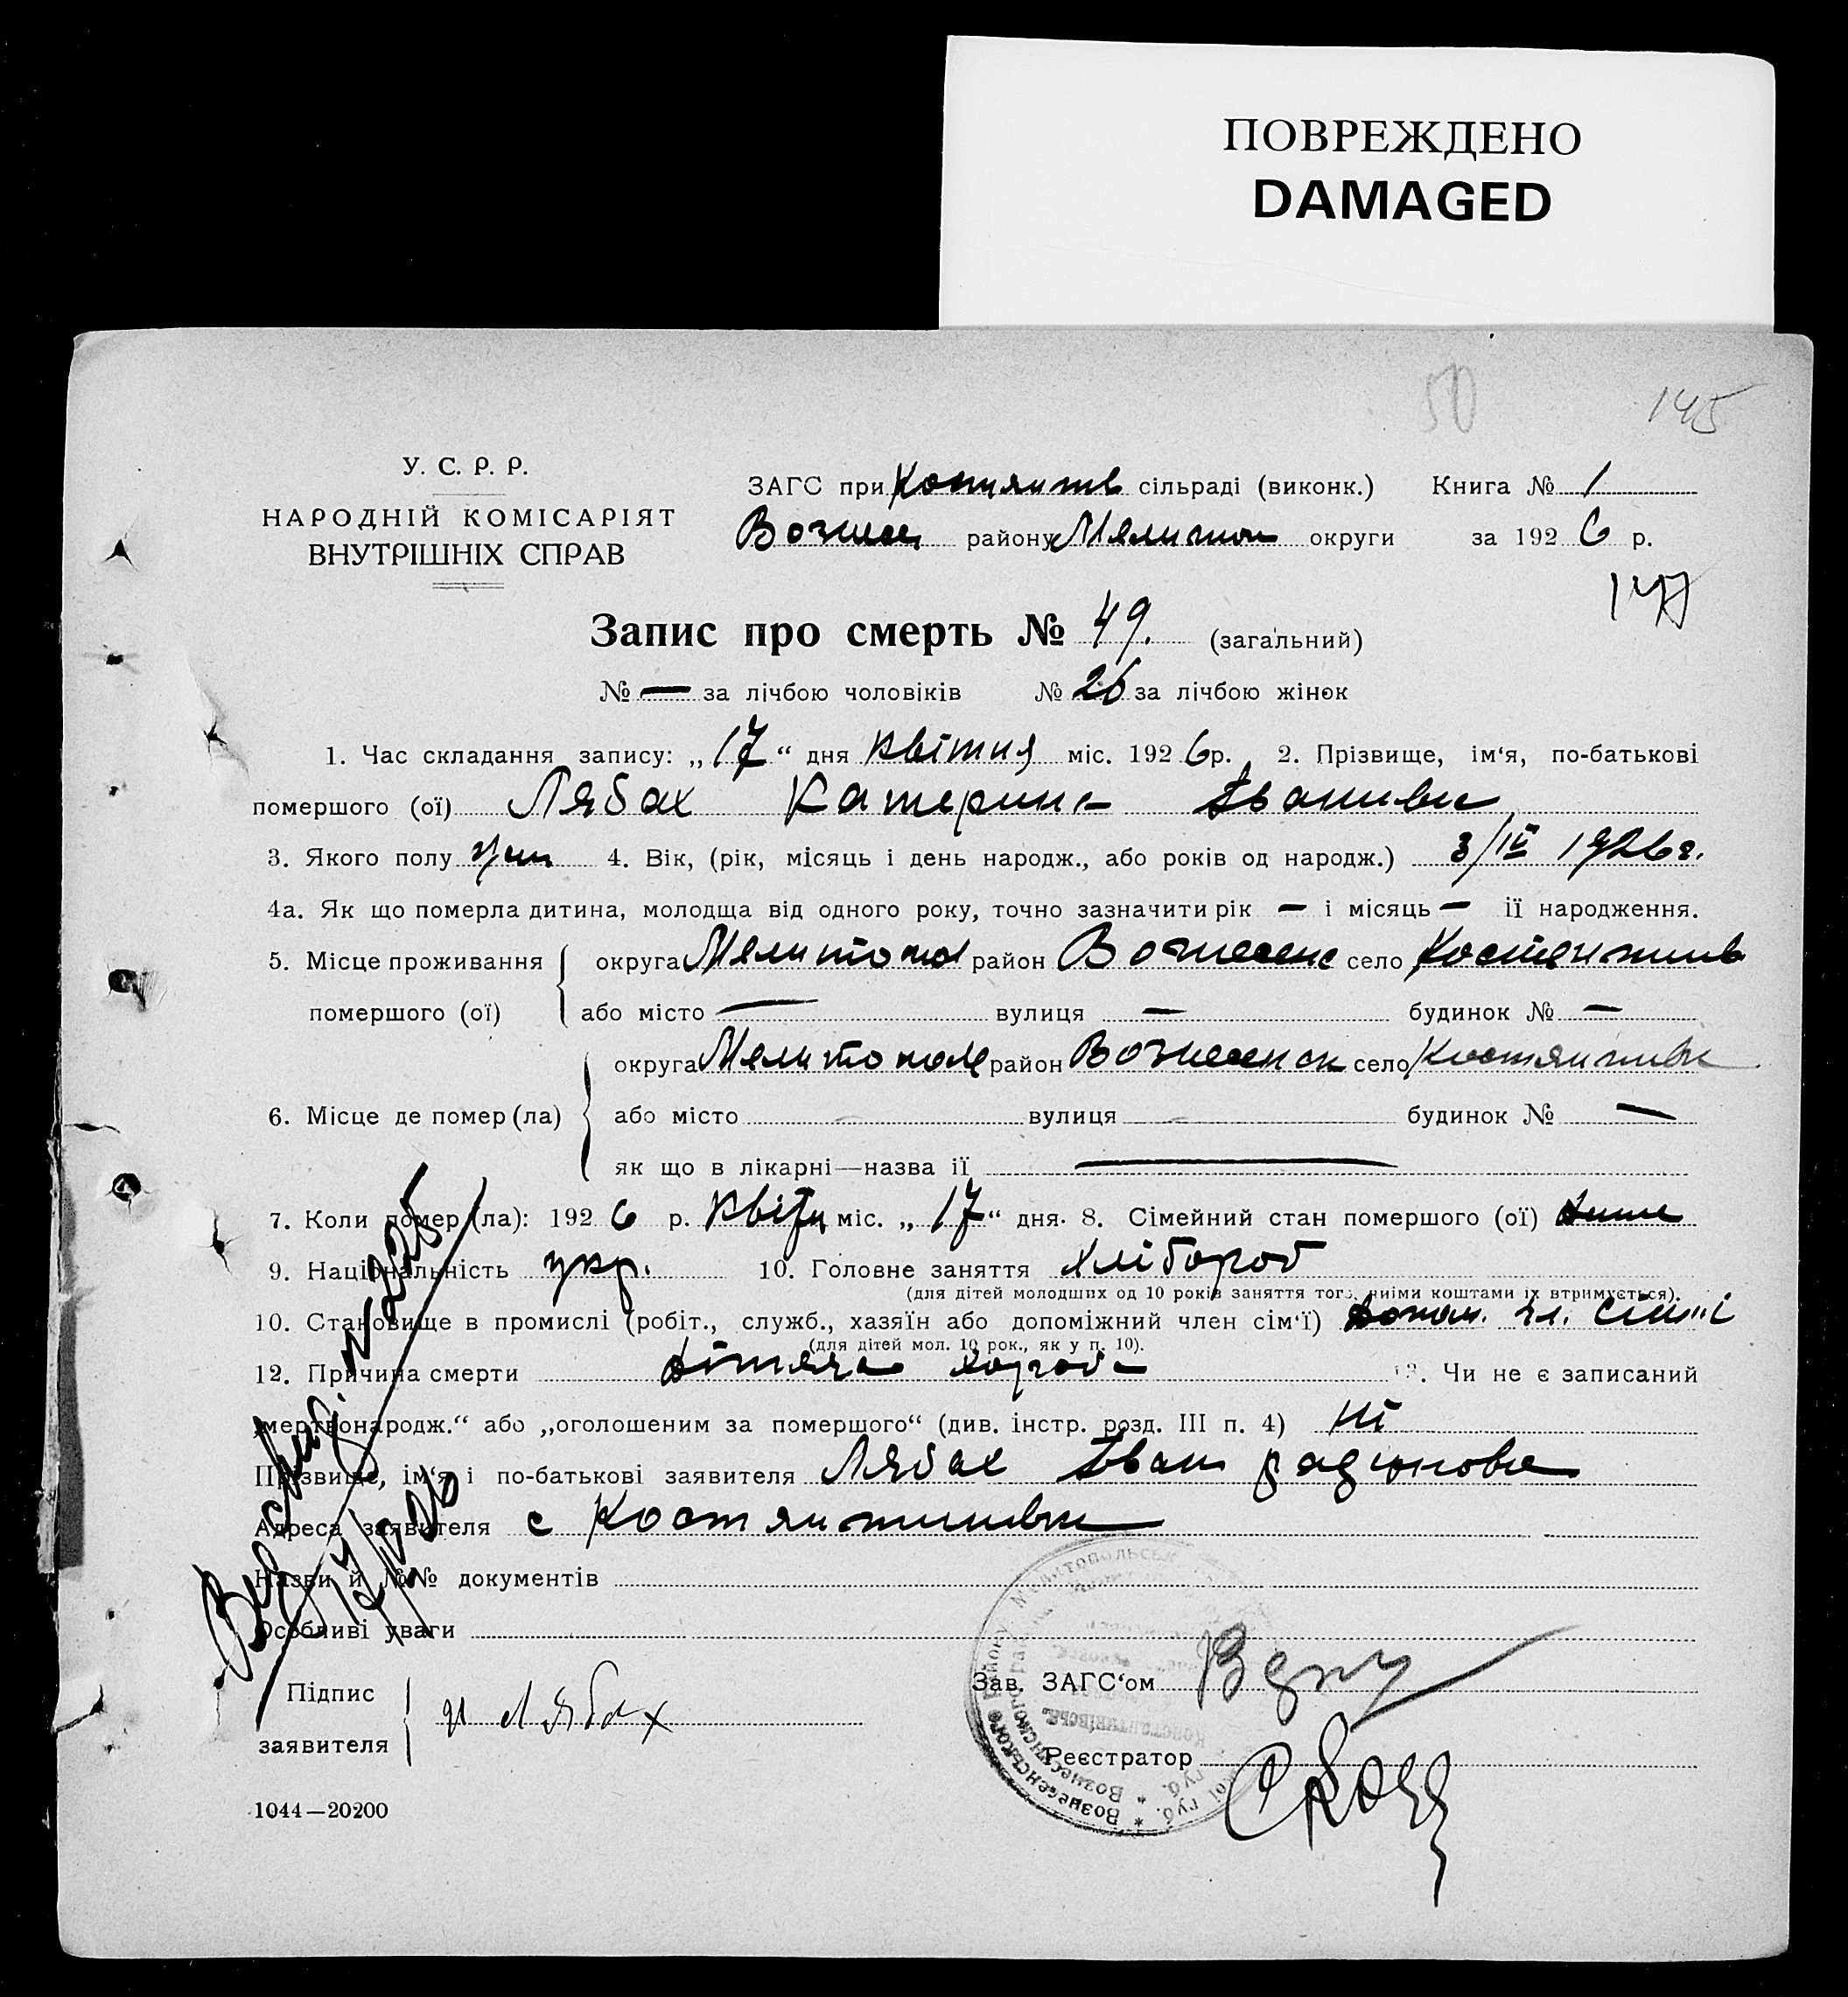 ПОВРЕЖДЕНО
DAMAGED
50 145
У. С. Р. Р.
НАРОДНІЙ КОМІСАРІЯТ
ВНУТРІШНІХ СПРАВ
ЗАГС при сільраді (виконк.) Книга № 1
Вознесе району Мелитоп округи за 1926 р.
147
Запис про смерть № 49. (загальний)
№ — за лічбою чоловіків № 26 за лічбою жінок
1. Час складання запису: „17“ дня квітня міс. 1926 р. 2. Прізвище, ім‘я, по-батькові
помершого (ої) Лябах Катерина Іванивна
3. Якого полу жин 4. Вік, (рік, місяць і день народж., або років од народж.) 3/IV 1926 г.
4а. Як що померла дитина, молодща від одного року, точно зазначити рік — і місяць — її народження.
5. Місце проживання помершого (ої) округа Мелитопол район Вознесенс село
або місто — вулиця — будинок № —
6. Місце де помер (ла) округа Мелитопол район Вознесенск село
або місто — вулиця — будинок № —
як що в лікарні—назва її —
7. Коли помер (ла): 1926 р. квітн міс. „17“ дня. 8. Сімейний стан помершого (ої)
9. Національність укр. 10. Головне заняття хлібороб
(для дітей молодших од 10 років заняття того, чиїми коштами їх втримується).
10. Становище в промислі (робіт., служб., хазяїн або допоміжний член сім‘ї) допом. чл. сімї
(для дітей мол. 10 рок., як у п. 10).
12. Причина смерти дітяча хороба 13. Чи не є записаний
„мертвонародж.“ або „оголошеним за помершого“ (див. інстр. розд. III п. 4) Ні
Прізвище, ім‘я і по-батькові заявителя Лябах Іван
Адреса заявителя с Костянтинивка
Назви й №№ документів
Особливі уваги
Підпис
заявителя И Лябах
Зав. ЗАГС‘ом
Реєстратор
1044—20200